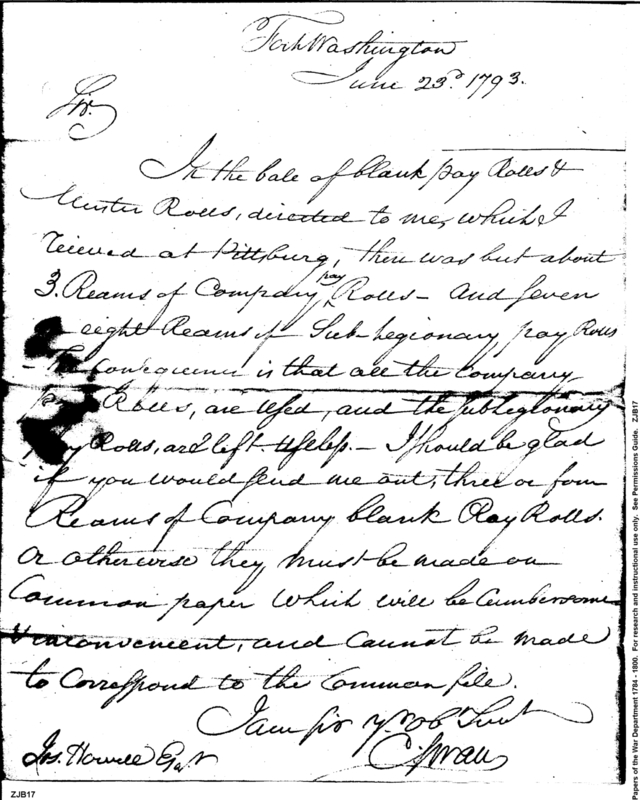 Fort Washington
June 23d. 1793.
Sir.
In the bale of blank pay Rolls &
Muster Rolls, directed to me, which I
reieved at Pittsburg, then was but about
3. Reams of Company pay Rolls – And seven
eight Reams of Sub-Legionary pay Rolls
– The consequence is that all the Company
pay Rolls, are used, and the sublegionary
pay Rolls, are left useless. – I should be glad
if you would send me out, three or four
Reams of Company blank Pay Rolls.
Or otherwise they must be made on
Common paper which will be Cumbersome
& inconvenient, and cannot be made
to Correspond to the Common file.
I am Sir yr. Obt. Servt
C: Swan
Jos. Howell Esqr
ZJB17
Papers of the War Department 1784 - 1800. For research and instructional use only. See Permissions Guide. ZJB17